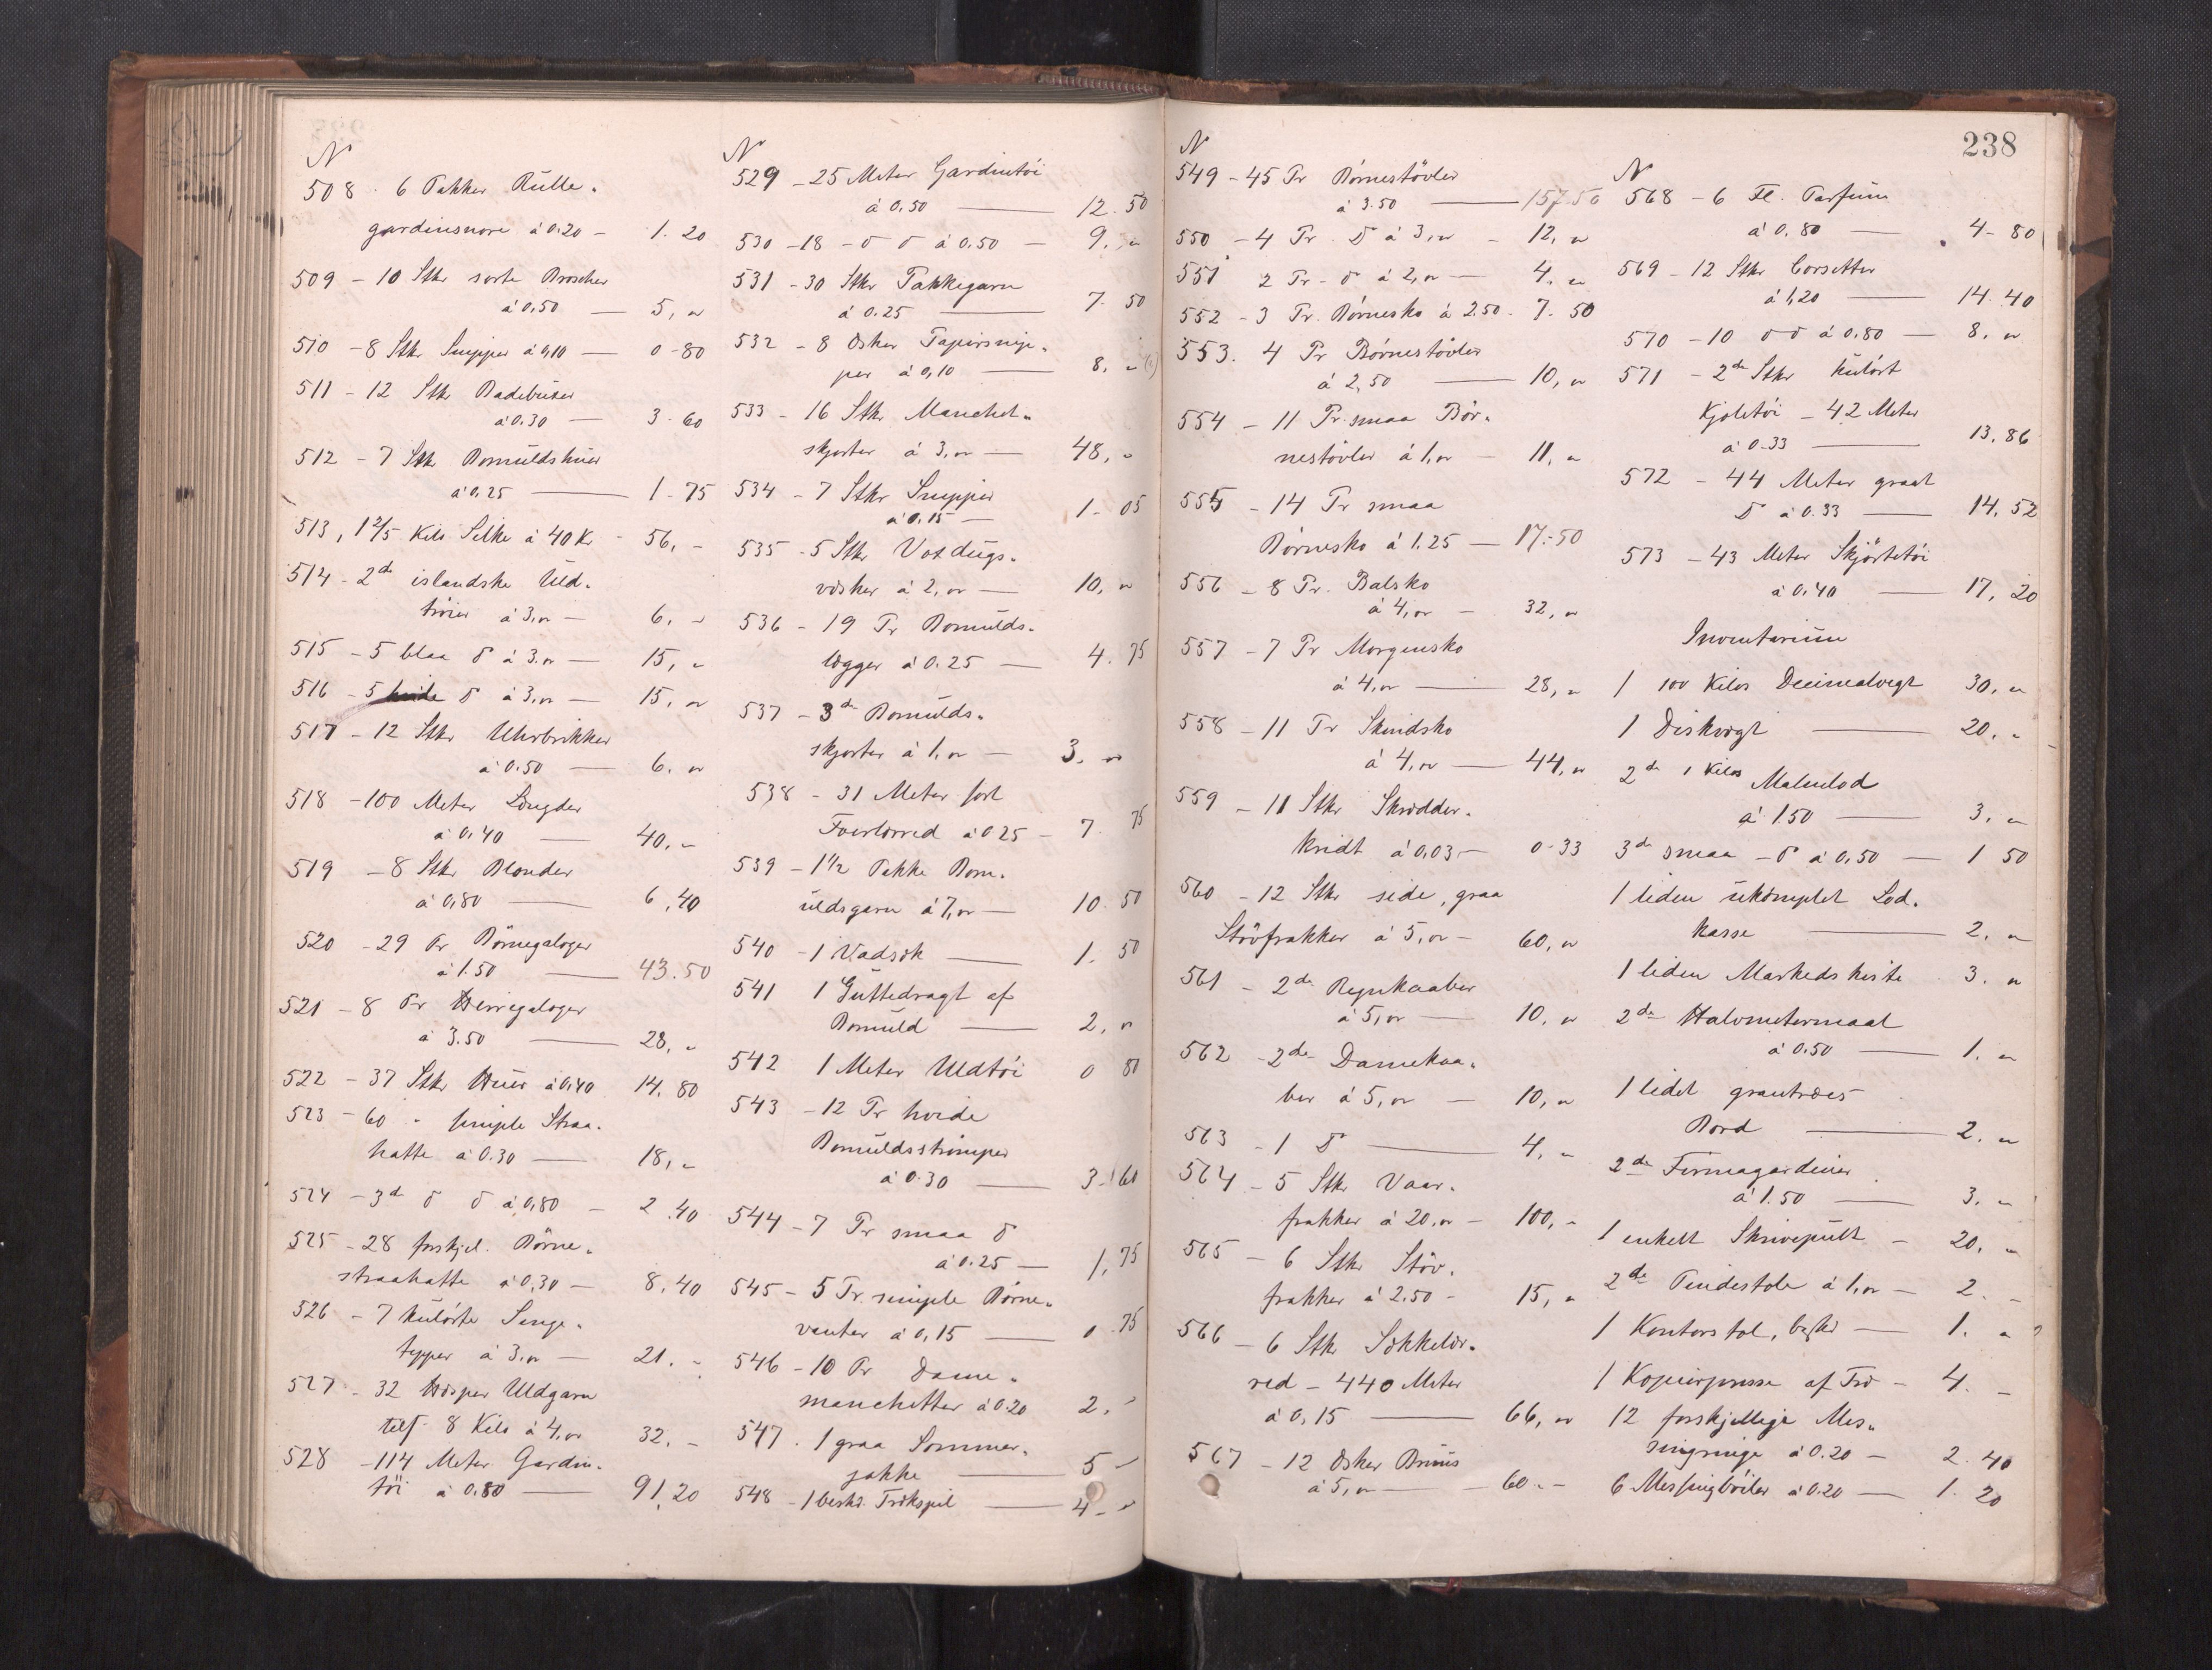 N
508 - 6 Pakker Rulle-
gardinsnore á 0.20 - 1.20
509 - 10 Stkr sorte Broscher
á 0,50 — 5, "
510 - 8 Stkr Snipper á 0,10 — 0-80
511 - 12 Stk Badebuxer
á 0.30 — 3.60
512 - 7 Stk Bomuldshuer
á 0,25 — 1-75
513, 1 2/5 Kilo Silke á 40 Kr - 56, -
514 - 2de islandske Uld-
trøier á 3, " — 6, -
515 - 5 blaa do á 3. " — 15, "
516 - 5 hvide do á 3, " — 15, "
517 - 12 Stkr Uhrbrikker
á 0.50 — 6. "
518 - 100 Meter Længder
á 0,40 — 40, "
519 - 8 Stkr Blonder
á 0,80 — 6,40
520 - 29 Pr Børnegaloger
á 1.50 — 43.50
521 - 8 Pr Herregaloger
á 3.50 — 28, "
522 - 37 Stkr Huer á 0,40 14.80
523 - 60 " simple Straa-
hatte á 0.30 — 18, "
524 - 3de do do á 0,80 - 2.40
525 - 28 forskjel. Børne-
straahatte á 0,30 — 8.40
526 - 7 kulørte Senge-
tepper á 3. " — 21. -
527 - 32 Hesper Uldgarn
tils. 8 Kilo á 4, " 32. -
528 - 114 Meter Gardin-
tøi á 0.80 — 91,20
N
529 - 25 Meter Gardintøi
á 0,50 — 12.50
530 - 18 - do do á 0.50 — 9. "
531 - 30 Stkr Pakkegarn
á 0.25 — 7.50
532 - 8 Æsker Papirsnip-
per á 0,10 — 8, "
533 - 16 Stkr Manchet-
skjorter á 3, " — 48, "
534 - 7 Stkr Snipper
á 0,15 — 1-05
535 - 5 Stkr Voxdugs-
vesker á 2, " — 10, "
536 - 19 Pr Bomulds-
legger á 0.25 — 4.75
537 - 3de Bomulds-
skjorter á 1, " — 3. "
538 - 31 Meter sort
Foerlærred á 0 25 - 7.75
539 - 1 1/2 Pakke Bom-
uldsgarn á 7, " — 10.50
540 - 1 Vadsæk — 1.50
541 1 Guttedragt af
Bomuld — 2, "
542 1 Meter Uldtøi 0 80
543 - 12 Pr hvide
Bomuldsstrømper
á 0.30 — 3.60
544 - 7 Pr smaa do
á 0.25 — 1,75
545 - 5 Pr. simple Børne-
vanter á 0,15 — 0.75
546 - 10 Pr Dame-
manchetter á 0.20 2. "
547. 1 graa Sommer-
jakke — 5 -
548 - 1 besk. Trækspil — 4 - "
238
N
549 - 45 Pr Børnestøvler
á 3.50 — 157.50
550 - 4 Pr. Do á 3, " - 12, "
551 2 Pr - do á 2, " — 4. "
552 - 3 Pr. Børnesko á 2.50 - 7.50
553. 4 Pr Børnestøvler
á 2,50 — 10, "
554 - 11 Pr smaa Bør-
nestøvler á 1, " - 11, "
555 - 14 Pr smaa
Børnesko á 1.25 — 17.50
556 - 8 Pr. Balsko
á 4, " - 32, "
557 - 7 Pr Morgensko
á 4, " — 28, "
558 - 11 Pr Skindsko
á 4, " — 44, "
559 - 11 Stkr Skrædder-
kridt á 0,03 - 0-33
560 - 12 Stkr side, graa
Støvfrakker á 5, " - 60, "
561 - 2de Regnkaaber
á 5, " — 10, "
562 - 2de Damekaa-
ber á 5, " — 10, "
563 - 1 Do — 4, "
564 - 5 Stkr Vaar-
frakker á 20, " - 100, -
565 - 6 Stkr Støv-
frakker á 2.50 - 15, "
566 - 6 Stkr Sækkelær-
red - 440 Meter
á 0,15 — 66, "
567 - 12 Æsker Bruus
á 5, " — 60. -
N
568 - 6 Fl. Parfum
á 0,80 — 4-80
569 - 12 Stkr Corsetter
á 1,20 — 14.40
570 - 10 do do á 0.80 — 8. "
571 - 2de Stkr kulørt
Kjoletøi - 42 Meter
á 0.33 — 13.86
572 - 44 Meter graat
Do á 0.33 — 14.52
573 - 43 Meter Skjørtetøi
á 0,40 — 17.20
Inventarium
1 100 Kilos Decimalvegt 30. "
1 Diskvægt — 20. "
2de 1 Kilos Malmlod
á 1.50 — 3. "
3de smaa - do á 0,50 — 1 50
1 liden ukomplet Lod-
kasse — 2. "
1 liden Markedskiste - 3. "
2de Halvmetermaal
á 0.50 — 1. "
1 lidet grantræes
Bord — 2. "
2de Firmagardiner
á 1.50 — 3. "
1 enkelt Skrivepult - 20. "
2de Pindestole á 1, " — 2. -
1 Kontorstol, besk. — 1. "
1 Kopierpresse af Træ - 4. -
12 forskjellige Mes-
singringe á 0.20 — 2.40
6 Messingbøiler á 0.20 — 1.20